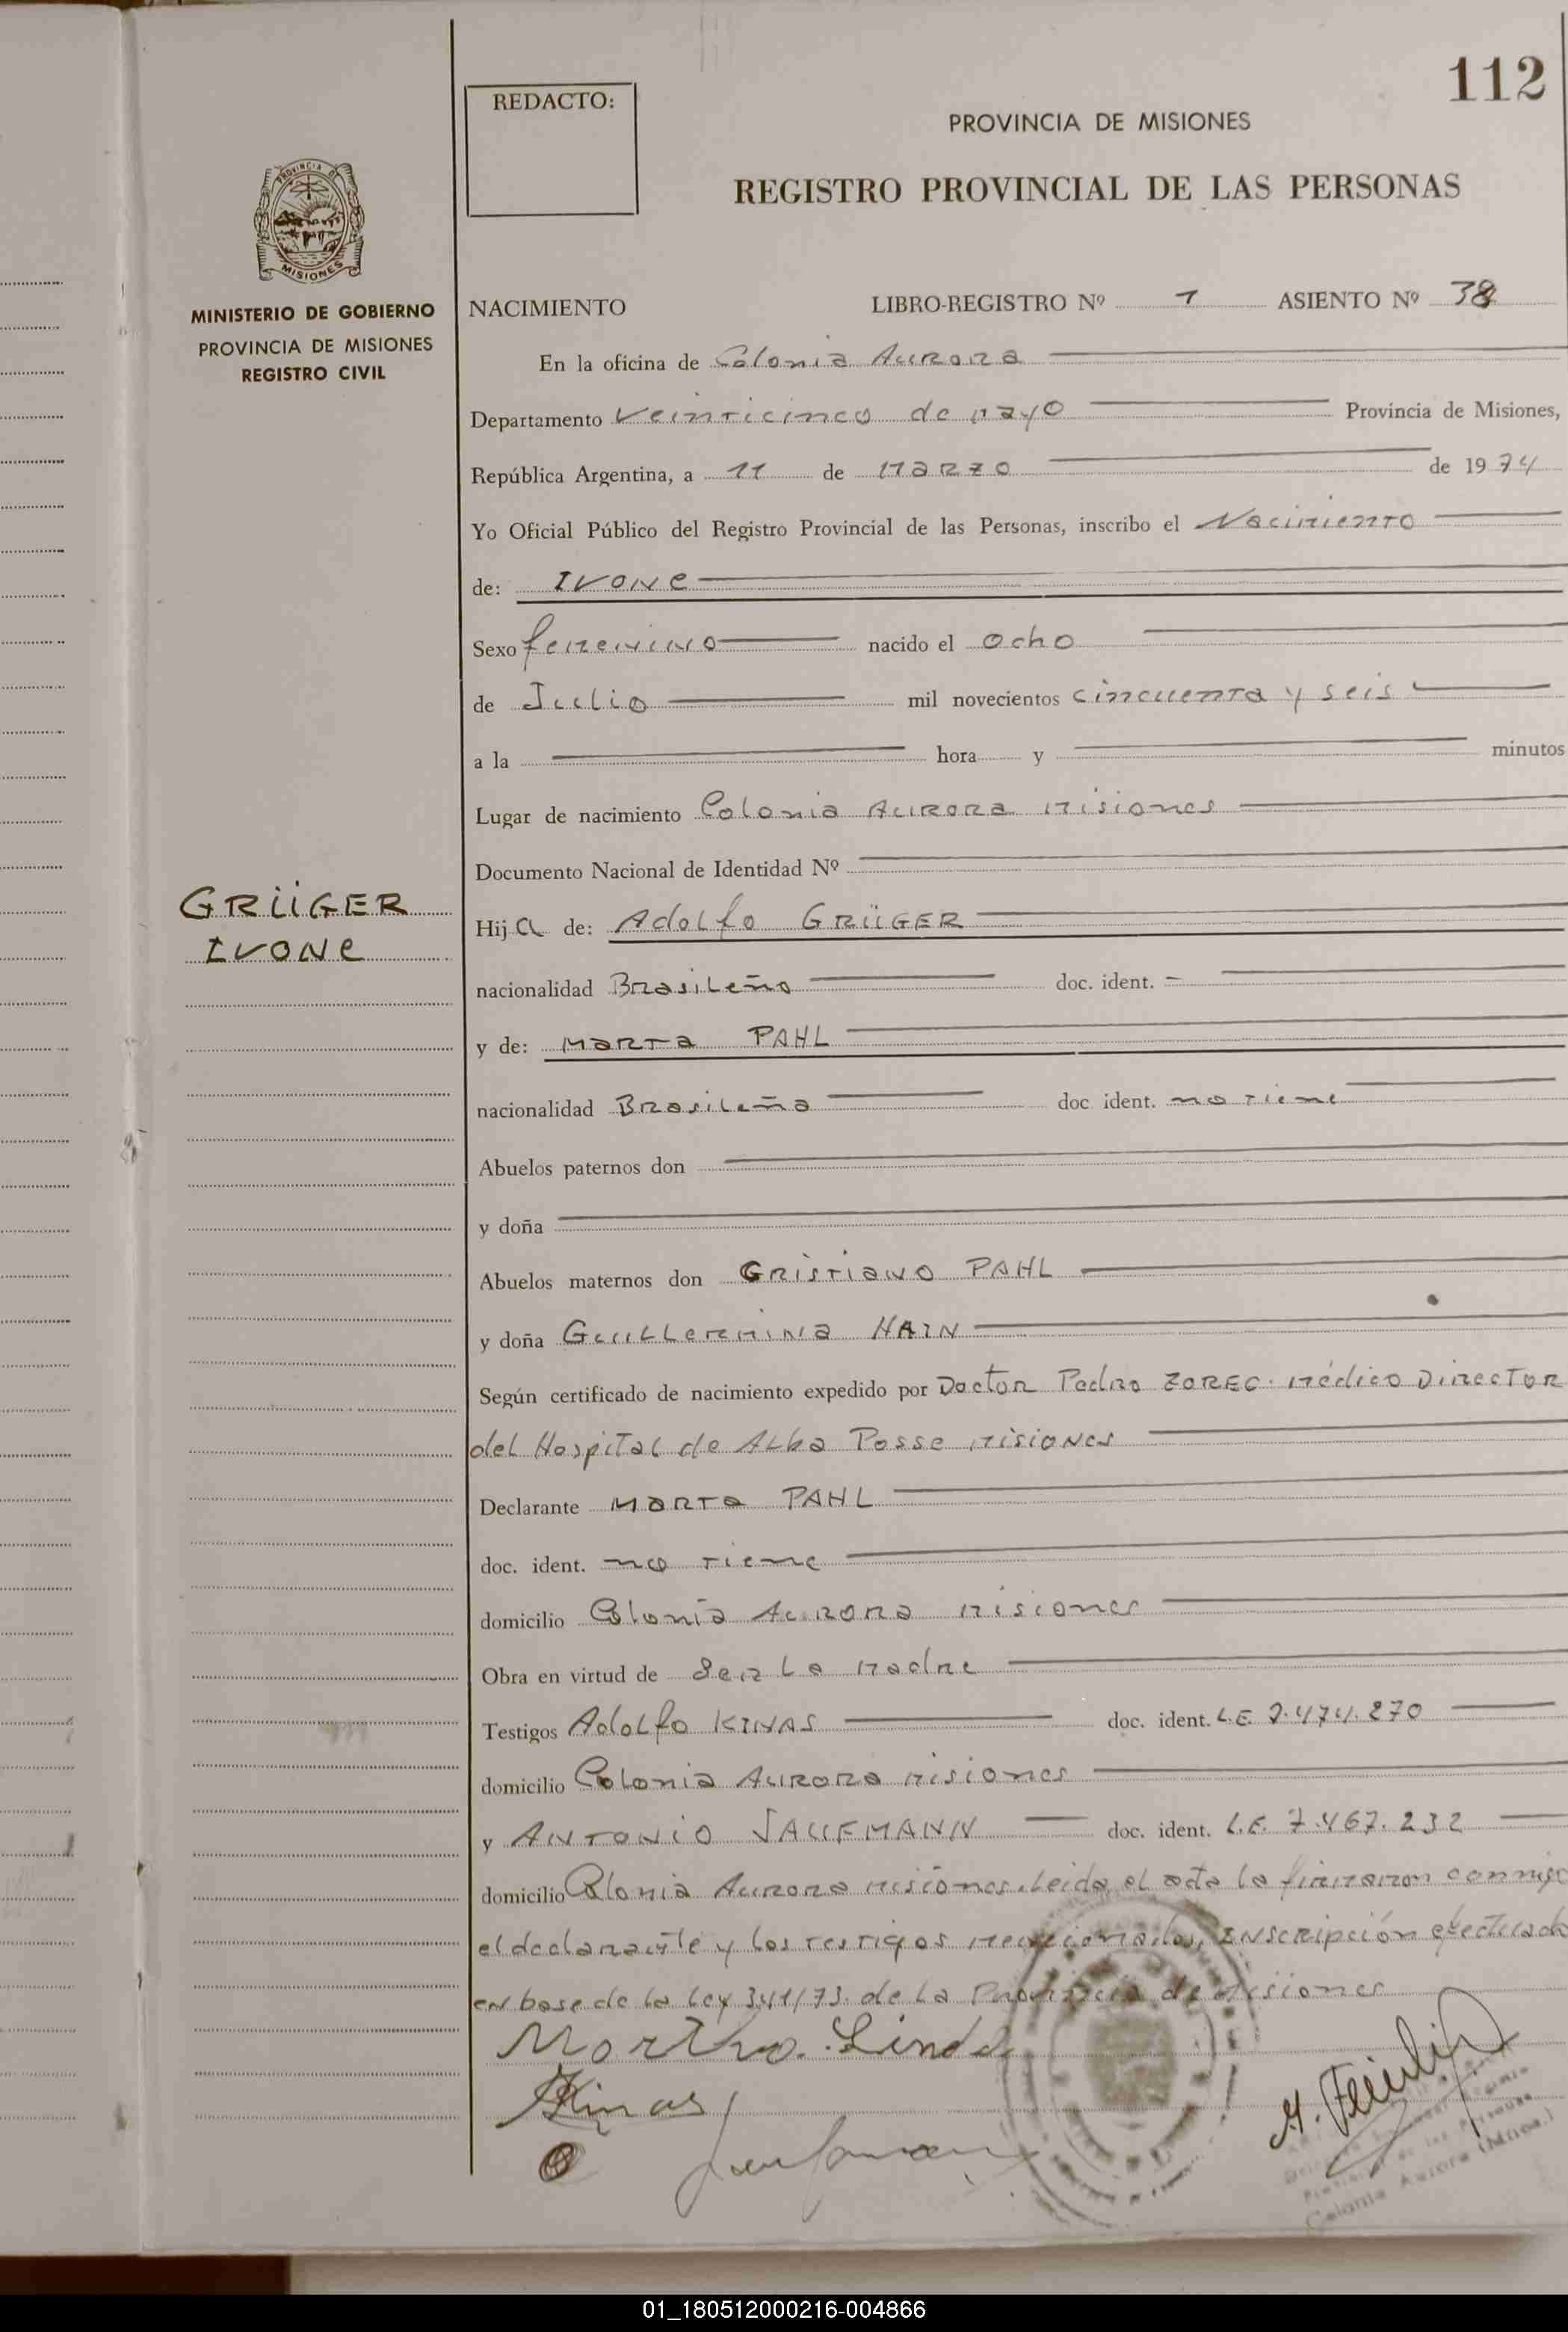 112
REDACTO:
PROVINCIA DE MISIONES
REGISTRO PROVINCIAL DE LAS PERSONAS
PROVINCIA DE
MISIONES
MINISTERIO DE GOBIERNO
PROVINCIA DE MISIONES
REGISTRO CIVIL
NACIMIENTO LIBRO-REGISTRO Nº 1 ASIENTO Nº 38
En la oficina de Colonia Aurora
Departamento Veinticinco de mayo Provincia de Misiones,
República Argentina, a 11 de Marzo de 1974
Yo Oficial Público del Registro Provincial de las Personas, inscribo el Nacimiento
de: IVONe
Sexo femenino nacido el ocho
de Julio mil novecientos cincuenta y seis
a la hora y minutos
Lugar de nacimiento Colonia Aurora Misiones
Documento Nacional de Identidad Nº
GRÜGER
IVONe
Hija de: Adolfo GRÜGER
nacionalidad Brasileño doc. ident. –
y de: Marta PAHL
nacionalidad Brasileña doc ident. no tiene
Abuelos paternos don
y doña
Abuelos maternos don Gristiano PAHL
y doña Guillermina HAIN
Según certificado de nacimiento expedido por Doctor Pedro ZOREC. Médico Director
del Hospital de Alba Posse Misiones
Declarante Marta PAHL
doc. ident. no tiene
domicilio Colonia Aurora Misiones
Obra en virtud de Ser La Madre
Testigos Adolfo KINAS doc. ident. L.E. 7.474.270
domicilio Colonia Aurora Misiones
y ANTONIO JAUFMANN doc. ident. L.E. 7.467.232
domicilio Colonia Aurora Misiones. Leida el acta la firmaron conmigo
el declarante y los testigos mencionados, Inscripción efectuada
en base de la Ley 341/73. de la Provincia de Misiones
Martha. Linda
Kinas
Colonia Aurora (Mnes.)
01_180512000216-004866